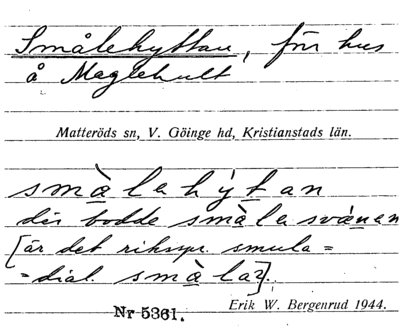 Smålehyttan, för hus
å Maglehult
Matteröds sn, V. Göinge hd, Kristianstads län.
smàlehỳtan
där bodde smàlesvànen
[är det riksspr. smula =
= dial. smàla?].
Nr 5361. Erik W. Bergenrud 1944.